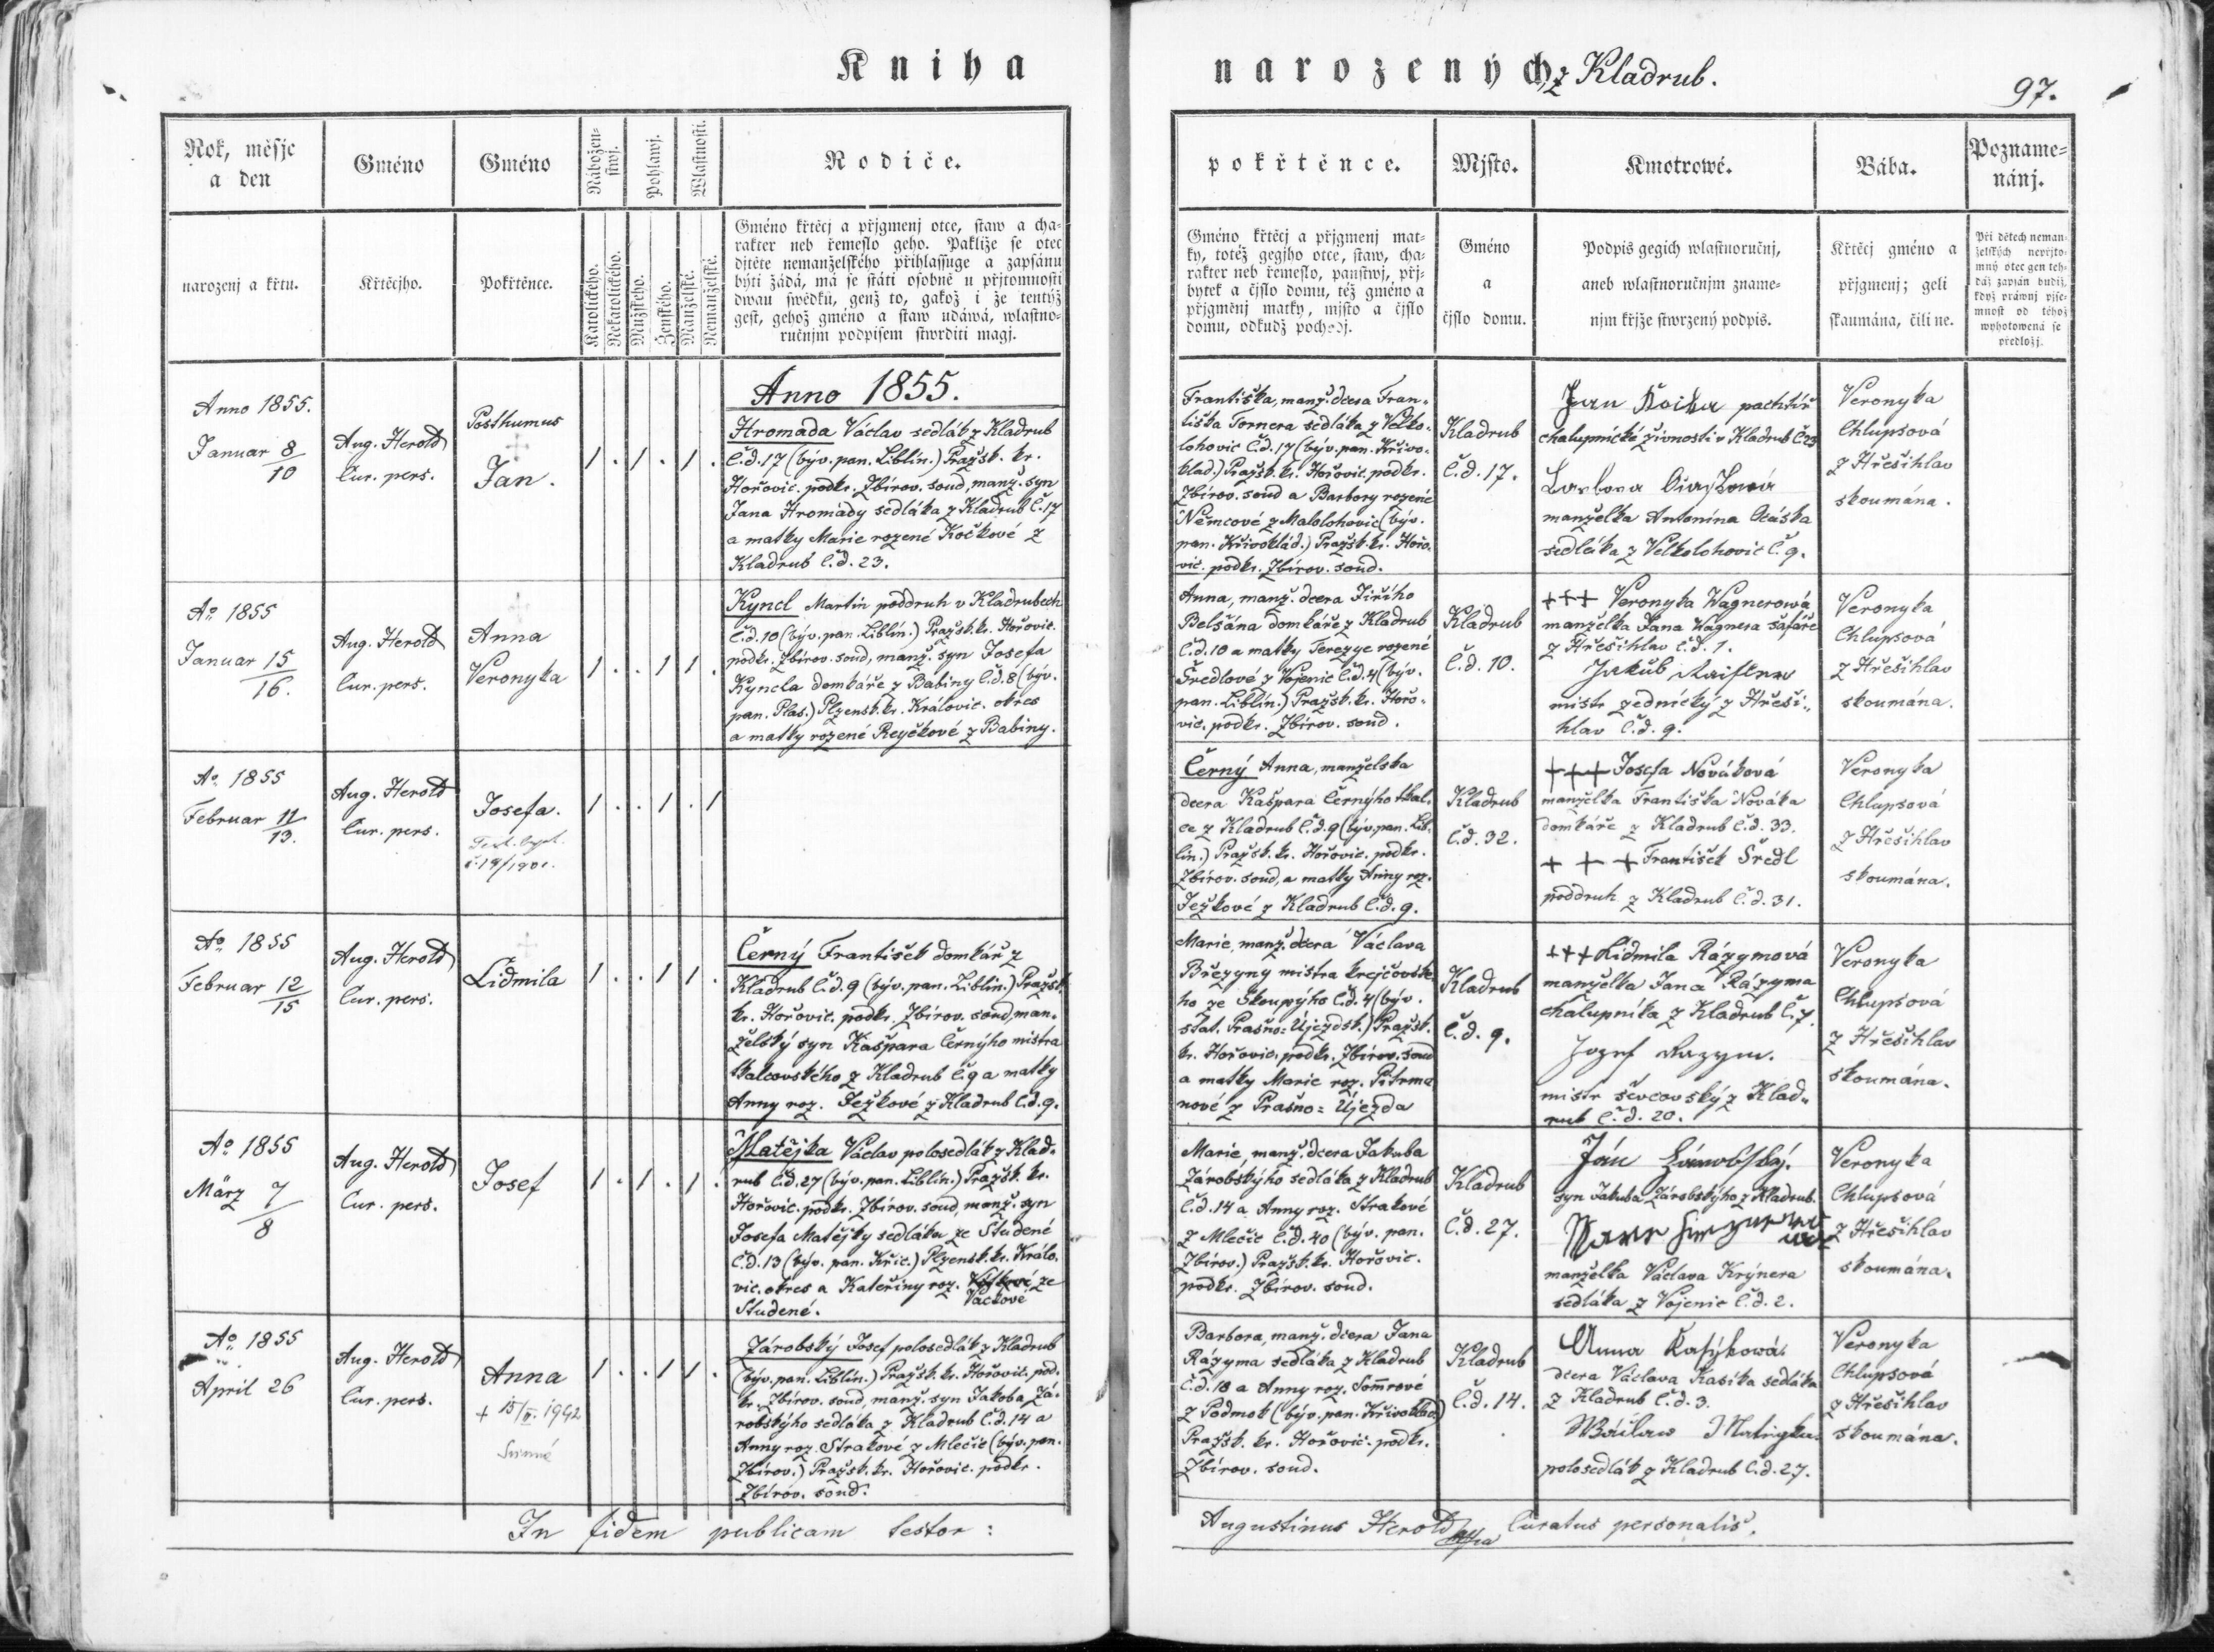 Kniha
narozených z Kladrub.
97.
Rok, měsjc
a den
Gméno
Gméno
Nábožen-
stwj.
Pohlawj.
Wlastnosti.
Rodiče.
narozenj a křtu.
Křtěcjho.
Pokřtěnce.
Katolického.
Nekatolického.
Mužského.
Ženského.
Manželské.
Nemanželské.
Gméno křtěcj a přjgmenj otce, staw a cha-
rakter neb řemeslo geho. Pakliže se otec
djtěte nemanželského přihlassuge a zapsánu
býti žádá, má se státi osobně u přjtomnosti
dwau swědků, genž to, gakož i že tentýž
gest, gehož gméno a staw udáwá, wlastno-
ručnjm podpisem stwrditi magj.
pokřtěnce.
Mjsto.
Kmotrowé.
Bába.
Pozname-
nánj.
Gméno křtěcj a přjgmenj mat-
ky, totéž gegjho otce, staw, cha-
rakter neb řemeslo, panstwj, přj-
bytek a čjslo domu, též gméno a
přjgměnj matky, mjsto a čjslo
domu, odkudž pocházj.
Gméno
a
čjslo domu.
Podpis gegich wlastnoručnj,
aneb wlastnoručnjm zname-
njm křjže stwrzený podpis.
Křtěcj gméno a
přjgmenj; geli
skaumána, čili ne.
Při dětech neman-
želských nepřjto-
mný otec gen teh-
dáž zapsán budiž,
když práwnj pjse-
mnost od téhož
wyhotowená se
předložj.
Anno 1855.
Anno 1855.
Januar 8
10
Aug. Herold
Cur. pers.
Posthumus
Jan.
1 . 1 . 1 .
Hromada Václav sedlák z Kladrub
č.d. 17 (býv. pan. Liblín.) Pražsk. kr.
Hořovic. podkr. Zbírov. soud, manž. syn
Jana Hromady sedláka z Kladrub č. 17
a matky Marie rozené Kočkové z
Kladrub č.d. 23.
Františka, manž. dcera Fran-
tiška Fornera sedláka z Velko-
lohovic č.d. 17 (býv. pan. Křivo-
klad.) Pražsk. kr. Hořovic. podkr.
Zbírov. soud a Barbory rozené
Němcové z Malolohovic (býv.
pan. Křivoklád.) Pražsk. kr. Hořo-
vic. podkr. Zbírov. soud.
Kladrub
č.d. 17.
Jan Kočka pachtíř
chalupnické živnosti v Kladrub č. 23
manželka Antonína Očáska
sedláka z Velkolohovic č. 9.
Veronyka
Chlupsová
z Hřešihlav
skoumána.
Ao 1855
Januar 15
16.
Aug. Herold
Cur. pers.
Anna
Veronyka
1 . . 1 1 .
Kyncl Martin poddruh v Kladrubech
č.d. 10 (býv. pan. Liblín.) Pražsk. kr. Hořovic.
podkr. Zbírov. soud, manž. syn Josefa
Kyncla domkáře z Babiny č.d. 8 (býv.
pan. Plas.) Plzensk. kr. Královic. okres
a matky rozené Reyčkové z Babiny.
Anna, manž. dcera Jiřího
Belšána domkáře z Kladrub
č.d. 10 a matky Terezye rozené
Šredlové z Vojenic č.d. 4 (býv.
pan. Liblín.) Pražsk. kr. Hořo-
vic. podkr. Zbírov. soud.
Kladrub
č.d. 10.
+++ Veronyka Wagnerowá
manželka Jana Wagnera šafáře
z Hřešihlav č.d. 1.
Jakub
mistr zednický z Hřeši-
hlav č.d. 9.
Veronyka
Chlupsová
z Hřešihlav
skoumána.
Ao 1855
Februar 11
13.
Aug. Herold
Cur. pers.
Josefa.
1 . . 1 . 1
Černý Anna, manželska
dcera Kašpara Černýho tkal-
ce z Kladrub č.d. 9 (býv. pan. Lib-
lín.) Pražsk. kr. Hořovic. podkr.
Zbírov. soud, a matky Anny roz.
Ježkové z Kladrub č.d. 9.
Kladrub
č.d. 32.
+++ Josefa Nováková
manželka Františka Nováka
domkáře z Kladrub č.d. 33.
+ + + František Šredl
poddruh z Kladrub č.d. 31.
Veronyka
Chlupsová
z Hřešihlav
skoumána.
Ao 1855
Februar 12
15
Aug. Herold
Cur. pers.
Lidmila
1 . . 1 1 .
Černý František domkář z
Kladrub č.d. 9 (býv. pan. Liblín.) Pražsk.
kr. Hořovic. podkr. Zbírov. soud, man-
želský syn Kašpara Černýho mistra
tkalcovského z Kladrub č. 9 a matky
Anny roz. Ježkové z Kladrub č.d. 9.
Marie, manž. dcera Václava
Březyny mistra krejčovské-
ho ze Skoupýho č.d. 4 (býv.
stat. Prašno-Újezdsk.) Pražsk.
kr. Hořovic. podkr. Zbírov. soud
a matky Marie roz. Pitrma-
nové z Prašno-Újezda
Kladrub
č.d. 9.
+++ Lidmila Rázymová
manželka Jana Rázyma
chalupníka z Kladrub č. 7.
Jozef Razym.
mistr ševcovský z Klad-
rub č.d. 20.
Veronyka
Chlupsová
z Hřešihlav
skoumána.
Ao 1855
März 7
8
Aug. Herold
Cur. pers.
Josef
1 . 1 . 1 .
Matějka Václav polosedlák z Klad-
rub č.d. 27 (býv. pan. Liblín.) Pražsk. kr.
Hořovic. podkr. Zbírov. soud, manž. syn
Josefa Matějky sedláka ze Studené
č.d. 13 (býv. pan. Křic.) Plzensk. kr. Králo-
vic. okres a Kateřiny roz. ze
Vackové
Studené.
Marie, manž. dcera Jakuba
Zárobskýho sedláka z Kladrub
č.d. 14 a Anny roz. Strakové
z Mlečic č.d. 40 (býv. pan.
Zbírov.) Pražsk. kr. Hořovic.
podkr. Zbírov. soud.
Kladrub
č.d. 27.
Ján Zárobský.
syn Jakuba Zárobskýho z Kladrub.
manželka Václava Krýnera
sedláka z Vojenic č.d. 2.
Veronyka
Chlupsová
z Hřešihlav
skoumána.
Ao 1855
April 26
Aug. Herold
Cur. pers.
Anna
+ 15/II. 1942
1 . . 1 1 .
Zárobský Josef polosedlák z Kladrub
(býv. pan. Liblín.) Pražsk. kr. Hořovic. pod-
kr. Zbírov. soud, manž. syn Jakoba Zá-
robskýho sedláka z Kladrub č.d. 14 a
Anny roz. Strakové z Mlečic (býv. pan.
Zbírov.) Pražsk. kr. Hořovic. podkr.
Zbírov. soud.
Barbora, manž. dcera Jana
Rázyma sedláka z Kladrub
č.d. 18 a Anny roz. Somrové
z Podmok (býv. pan. Křivoklád.)
Pražsk. kr. Hořovic. podkr.
Zbírov. soud.
Kladrub
č.d. 14.
Anna Kasýková
dcera Václava Kasíka sedláka
z Kladrub č.d. 3.
Wáclaw Matiegka
polosedlák z Kladrub č.d. 27.
Veronyka
Chlupsová
z Hřešihlav
skoumána.
In fidem publicam testor:
Augustinus Herold Curatus personalis.